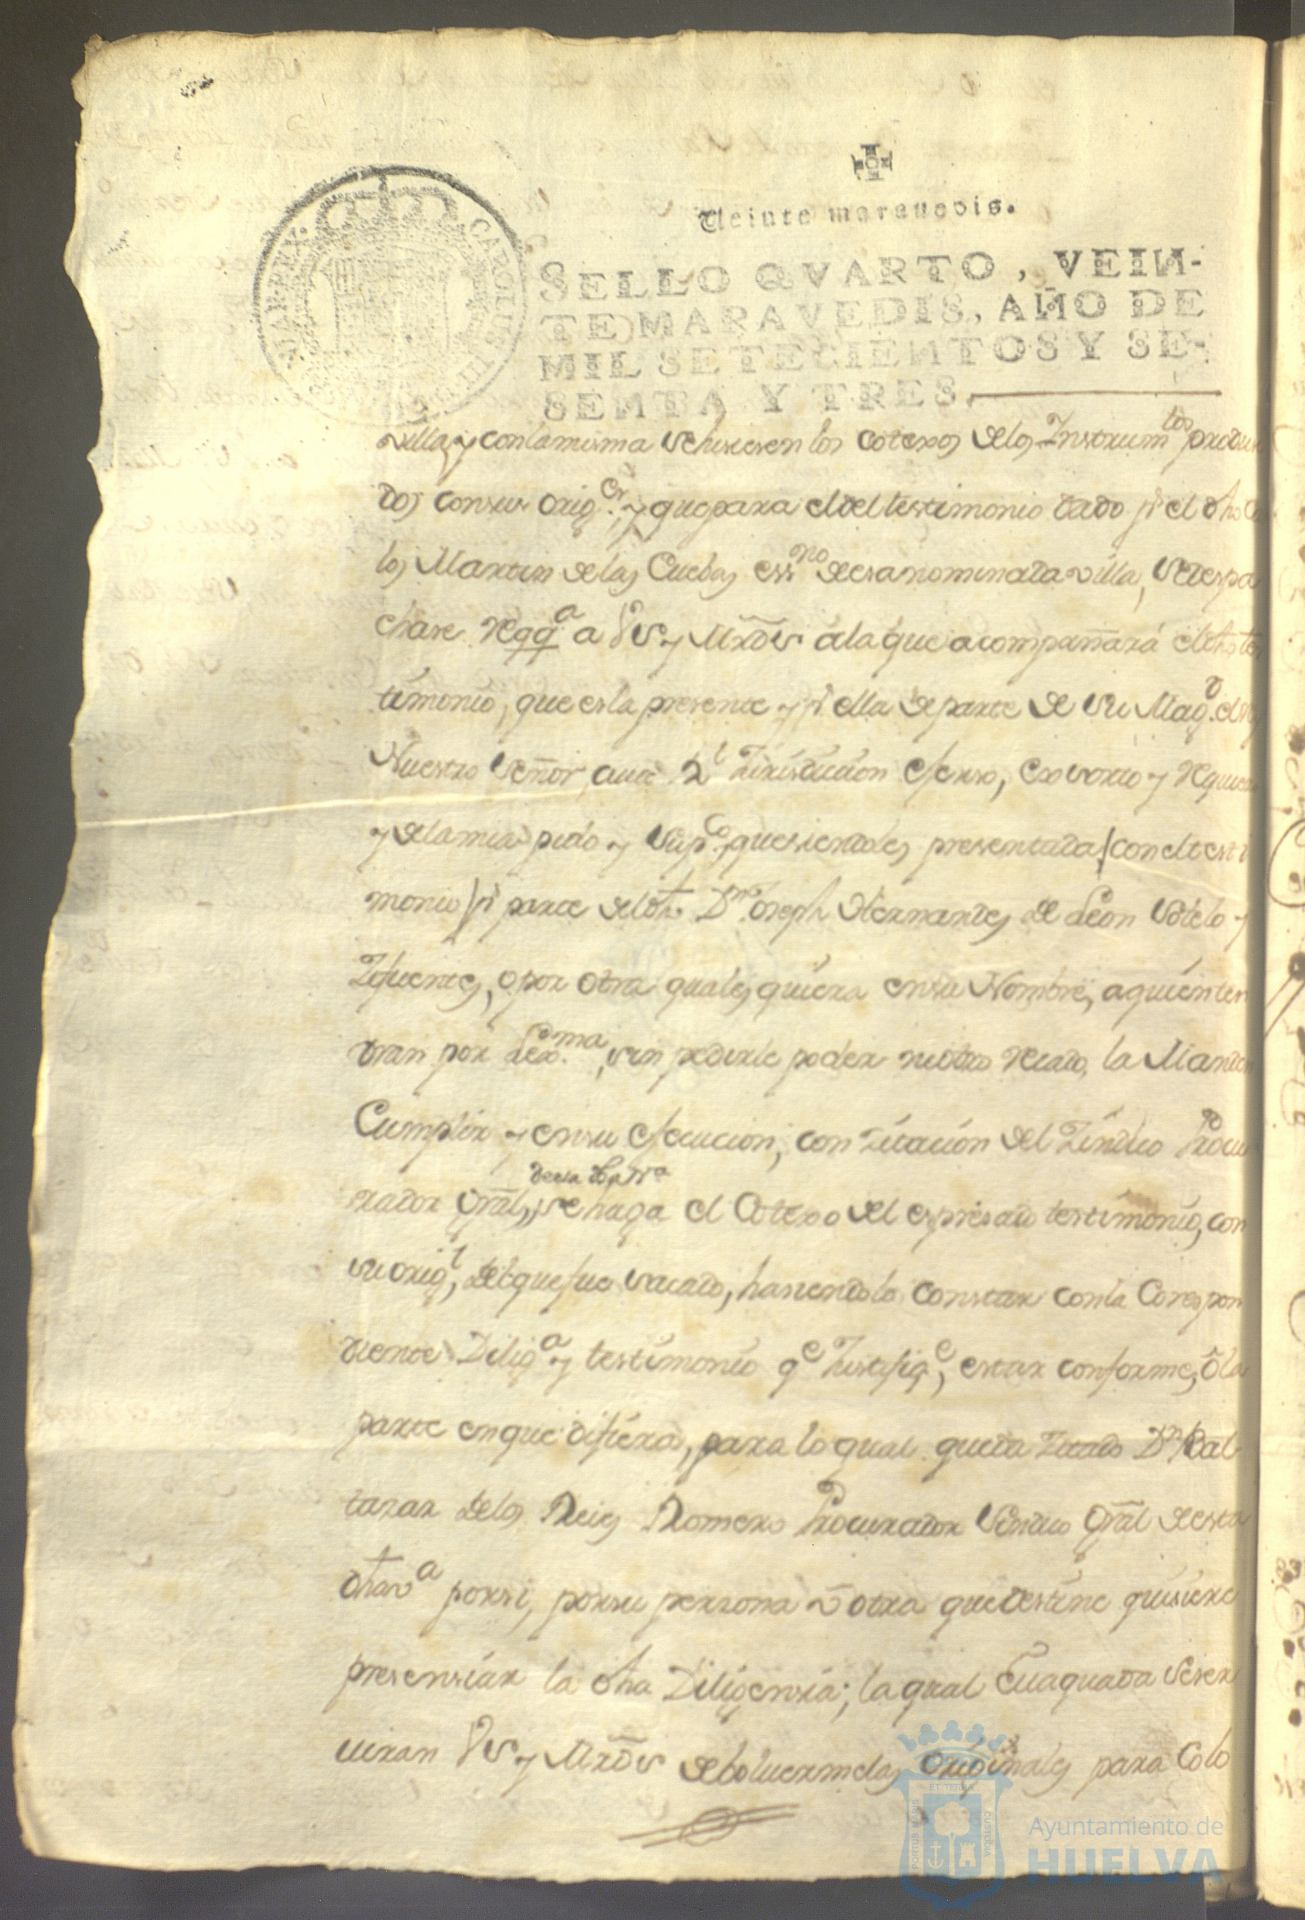 Veinte marauedis.
CAROLUS III
SELLO QVARTO, VEIN-
TE MARAVEDIS, AÑO DE
MIL SETECIENTOS Y SE-
SENTA Y TRES.
villa, y con la misma se hisiesen los cotexos de los Instrumtos produci
dos con sus orig.es, y que para el del testimonio dado pr el dho
los Martin de las Cuebas essno de esa nominada villa, se despa
chase Reqqa a VS y Mrdes a la que acompañará el dho tes
timonio, que es la presente y pr ella de parte de su Magd. el
Nuestro Señor, cuia Rl Jurisdicion eferso, exsorto y Requiero
y de la mia pido y supco, que siendoles presentada (con el testi
monio) pr parte del dho Dn Joseph Hernandes de Leon Sotelo y
Zifuentes, o por otra quales quiera en su Nombre, a quien ten
dran por Lexma, sin pedirle poder ni otro recado, la Manden
Cumplir y en su efecucion, con Zitacion del Zindico Procu
de esa dha Va
rador Gral, se haga el Cotexo del espresado testimonio, con
su origl, del que fue sacado, hasiendolo constar con la Correspon
diente Diliga y testimonio qe Justifiqe, estar conforme, ó la
parte en que difiera, para lo qual queda zitado Dn Bal
tasar de los Reies Romero Procurador Sindico Gral de esta
dha va por si, por su persona u otra que destine quisiere
presensiar la dha Diligensia; la qual Evaquada se ser
viran VS y Mrdes debolvermelas originales para Colo
PORTUS MARIS
ET TERRAE
CUSTODIA
Ayuntamiento de
HUELVA